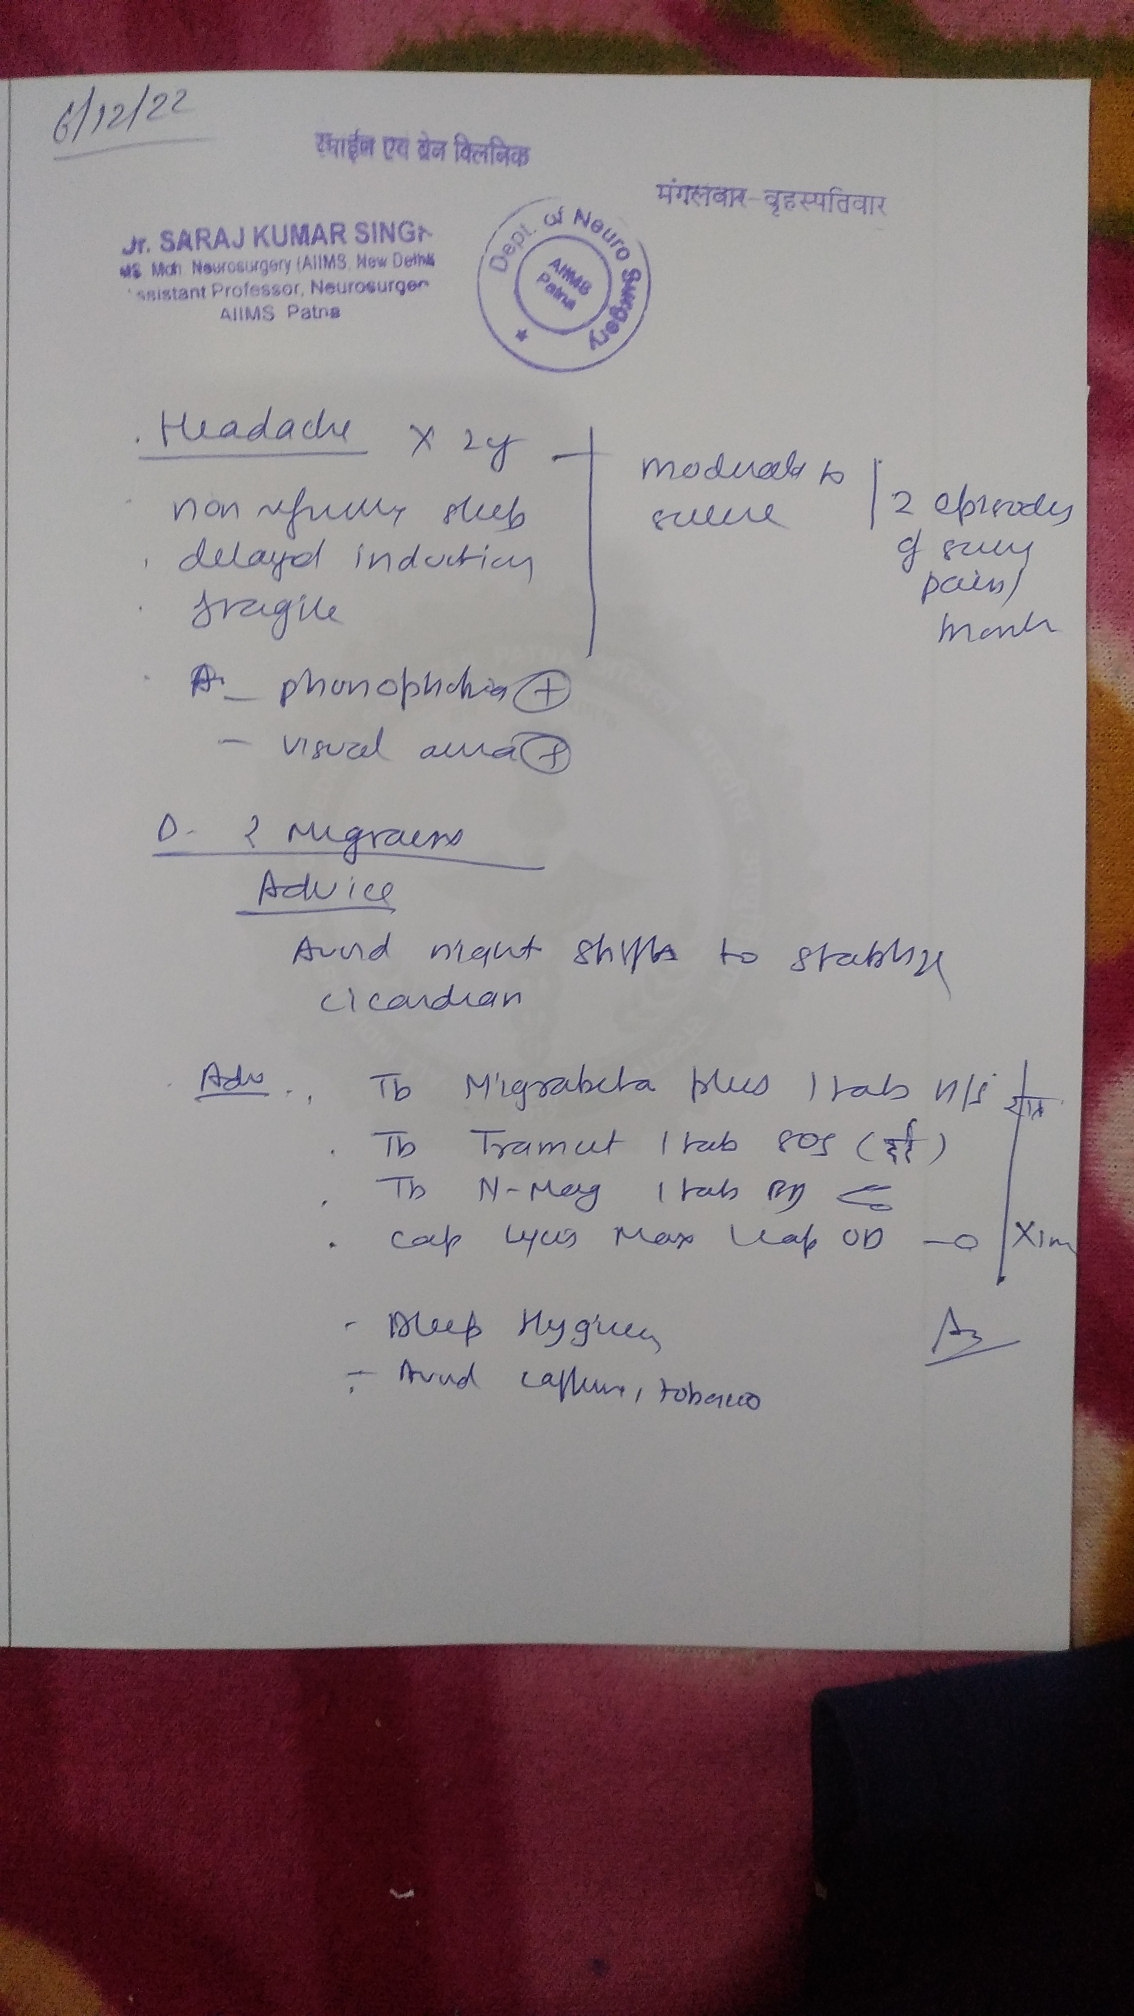 6/12/22
स्पाईन एवं ब्रेन क्लिनिक
मंगलवार-वृहस्पतिवार
Dr. SARAJ KUMAR SINGH
MS Mch Neurosurgery (AIIMS, New Delhi)
Assistant Professor, Neurosurgery
AIIMS Patna
Dept. of Neuro Surgery
AIIMS Patna
Headache x 2y
moderate to severe
2 episodes of
pain/
month
sleep
delayed induction
fragile
A - phonophobia +
- visual aura +
D - ? Migraine
Advice
Avoid night shifts to stablize
cicardian
Adv
Tb Migrabeta plus 1 tab
Tb 1 tab SOS (दर्द)
Tb 1 tab BD
Cap Max 1 cap OD
X 1m
- Sleep Hygiene
- Avoid caffeine, tobacco